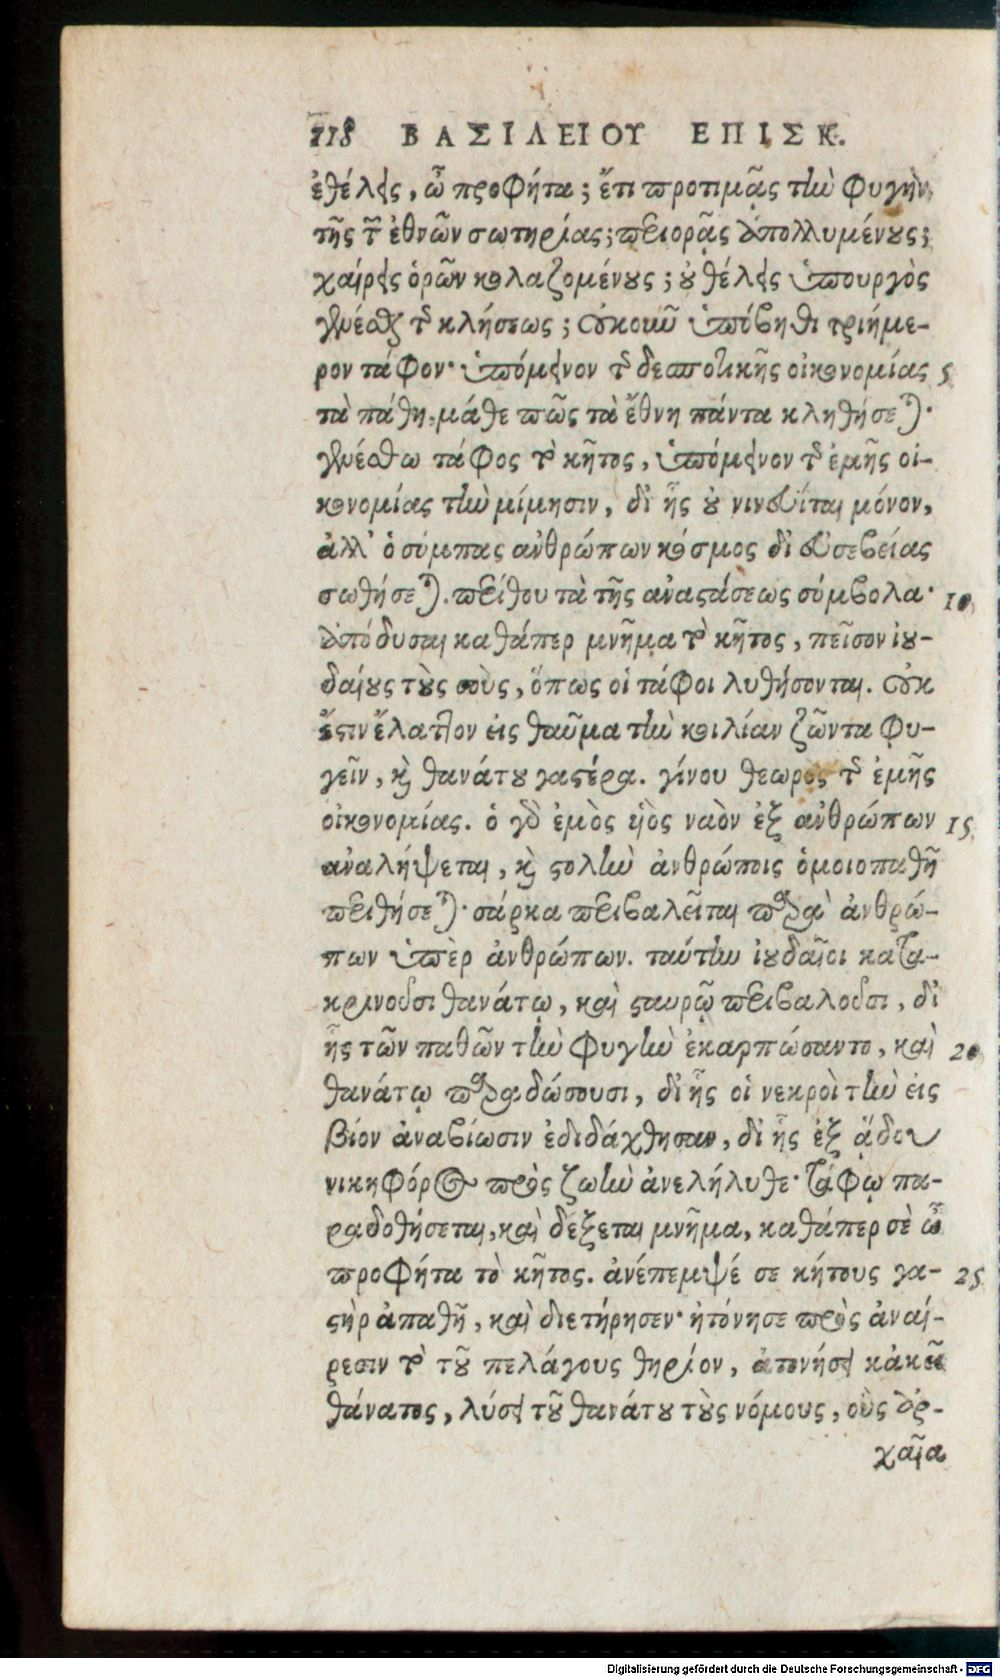 118 ΒΑΣΙΛΕΙΟΥ ΕΠΙΣΚ.
ἐθέλεις, ὦ προφήτα; ἔτι προτιμᾷς τὴν φυγὴν
τῆς τῶν ἐθνῶν σωτηρίας; περιορᾷς ἀπολλυμένους;
χαίρεις ὁρῶν κολαζομένους; οὐ θέλεις ὑπουργὸς
γενέσθαι τῆς κλήσεως; οὐκοῦν ὑπόβηθι τριήμε-
ρον τάφον· ὑπόμεινον τῆς δεσποτικῆς οἰκονομίας 5
τὰ πάθη, μάθε πῶς τὰ ἔθνη πάντα κληθήσεται·
γενέσθω τάφος τὸ κῆτος, ὑπόμεινον τῆς ἐμῆς οἰ-
κονομίας τὴν μίμησιν, δι' ἧς οὐ νινευῖται μόνον,
ἀλλ' ὁ σύμπας ἀνθρώπων κόσμος δι' εὐσεβείας
σωθήσεται. πείθου τὰ τῆς ἀναστάσεως σύμβολα· 10
ἀπόδυσαι καθάπερ μνῆμα τὸ κῆτος, πεῖσον ἰου-
δαίους τοὺς σοὺς, ὅπως οἱ τάφοι λυθήσονται. οὐκ
ἔστιν ἔλαττον εἰς θαῦμα τὴν κοιλίαν ζῶντα φυ-
γεῖν, καὶ θανάτου γαστέρα. γίνου θεωρὸς τῆς ἐμῆς
οἰκονομίας. ὁ γὰρ ἐμὸς υἱὸς ναὸν ἐξ ἀνθρώπων 15
ἀναλήψεται, καὶ στολὴν ἀνθρώποις ὁμοιοπαθῆ
περιθήσεται· σάρκα περιβαλεῖται παρὰ ἀνθρώ-
πων ὑπὲρ ἀνθρώπων. ταύτην ἰουδαῖοι κατα-
κρινοῦσι θανάτῳ, καὶ σταυρῷ περιβαλοῦσι, δι'
ἧς τῶν παθῶν τὴν φυγὴν ἐκαρπώσαντο, καὶ 20
θανάτῳ παραδώσουσι, δι' ἧς οἱ νεκροὶ τὴν εἰς
βίον ἀναβίωσιν ἐδιδάχθησαν, δι' ἧς ἐξ ᾅδου
νικηφόρος πρὸς ζωὴν ἀνελήλυθε· τάφῳ πα-
ραδοθήσεται, καὶ δέξεται μνῆμα, καθάπερ σὲ ὦ
προφήτα τὸ κῆτος. ἀνέπεμψέ σε κήτους γα- 25
στὴρ ἀπαθῆ, καὶ διετήρησεν· ἠτόνησε πρὸς ἀναί-
ρεσιν τὸ τοῦ πελάγους θηρίον, ἀτονήσει κἀκεῖ
θάνατος, λύσει τοῦ θανάτου τοὺς νόμους, οὓς ἀρ-
χαῖα
Digitalisierung gefördert durch die Deutsche Forschungsgemeinschaft - DFG